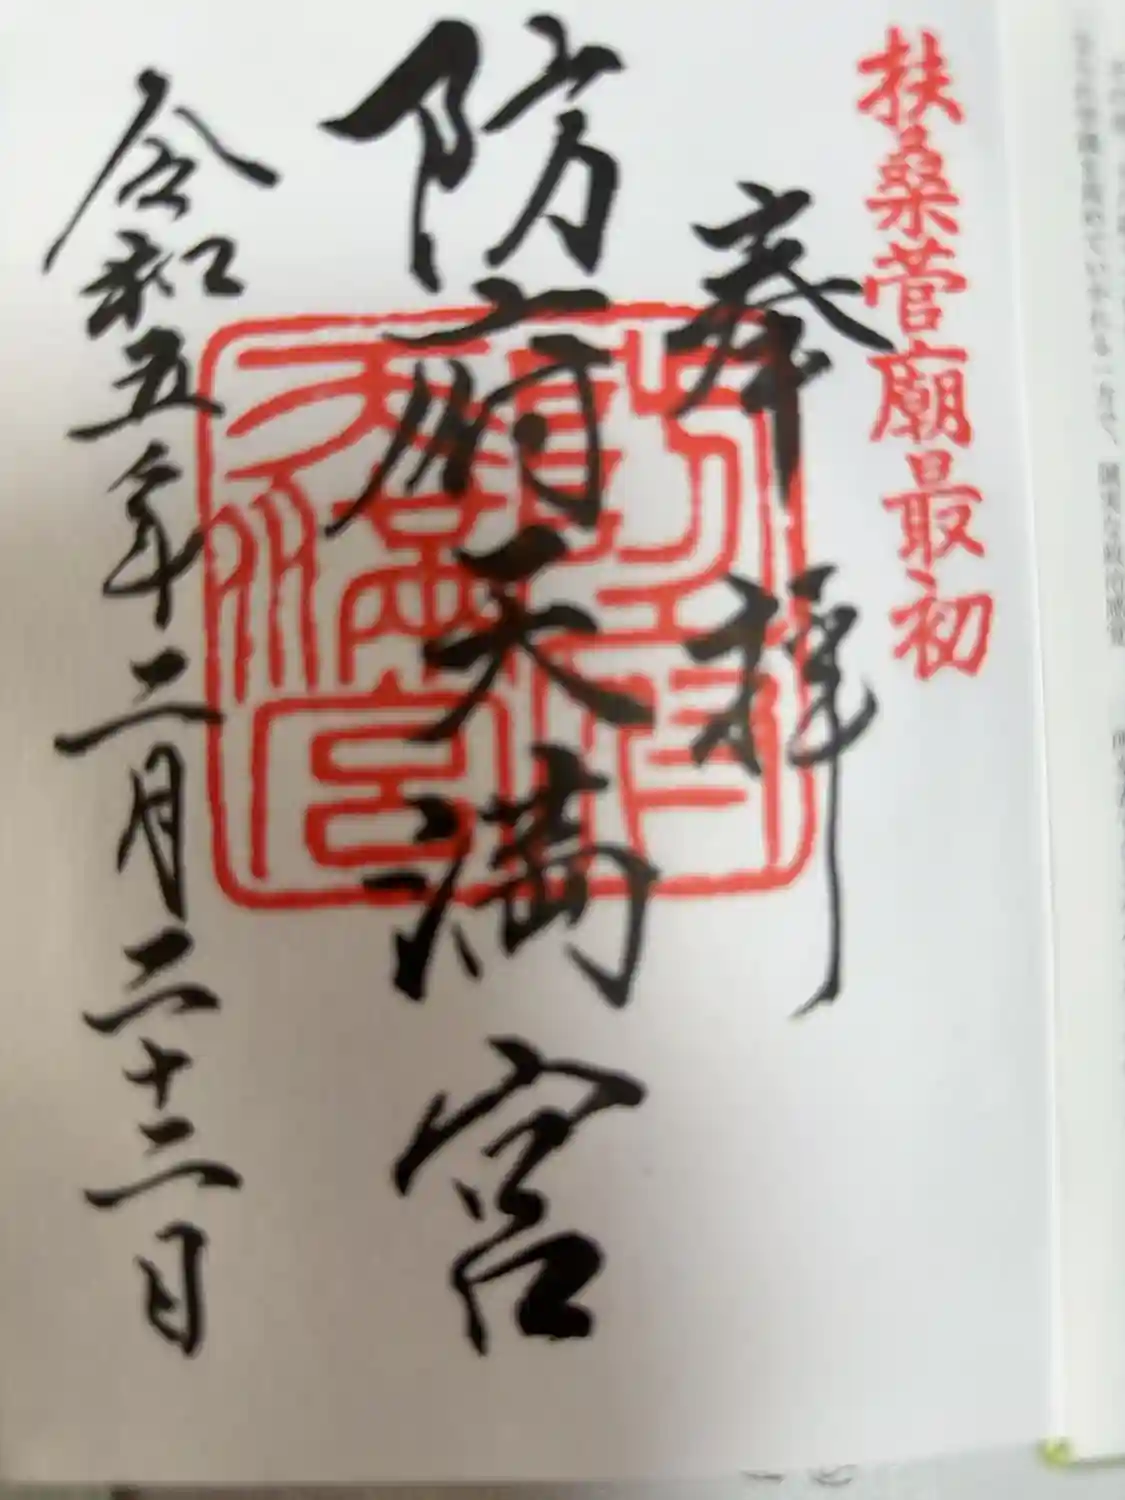 扶桑菅廟最初
奉拝
防府天満宮
令和五年二月二十二日
防府天満宮